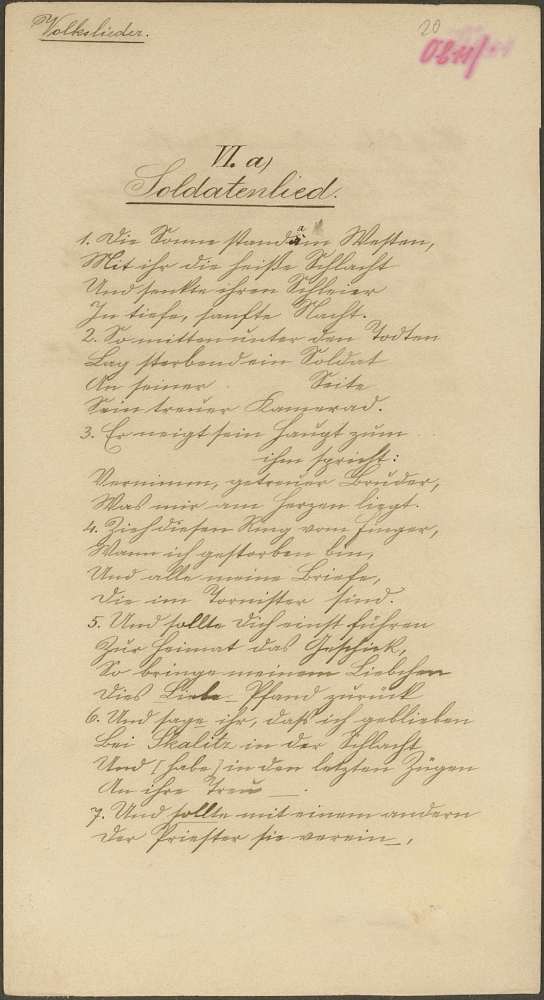 Volkslieder.
20
VI. a)
Soldatenlied.
1. Die Sonne stand im Westen,
a
Mit ihr die heiße Schlacht
Und senkte ihren Schleier
In tiefe, sanfte Nacht.
2. So mitten unter den Todten
Lag sterbend ein Soldat
An seiner Seite
Sein treuer Kamerad.
3. Er neigt sein Haupt zum
ihm spricht:
Vernimm, getreuer Bruder,
Was mir am Herzen liegt.
4. Zieh diesen Ring vom Finger,
Wann ich gestorben bin,
Und alle meine Briefe,
Die im Tornister sind.
5. Und sollte Dich einst führen
Zur Heimat das Geschick,
So bringe meinem Liebchen
Dies Liebe_ Pfand zurück
6. Und sage ihr, daß ich geblieben
Bei Skalitz in der Schlacht
Und (habe) in den letzten Zügen
An ihre Treu _ .
7. Und sollte mit einem andern
Der Priester sie verein_,